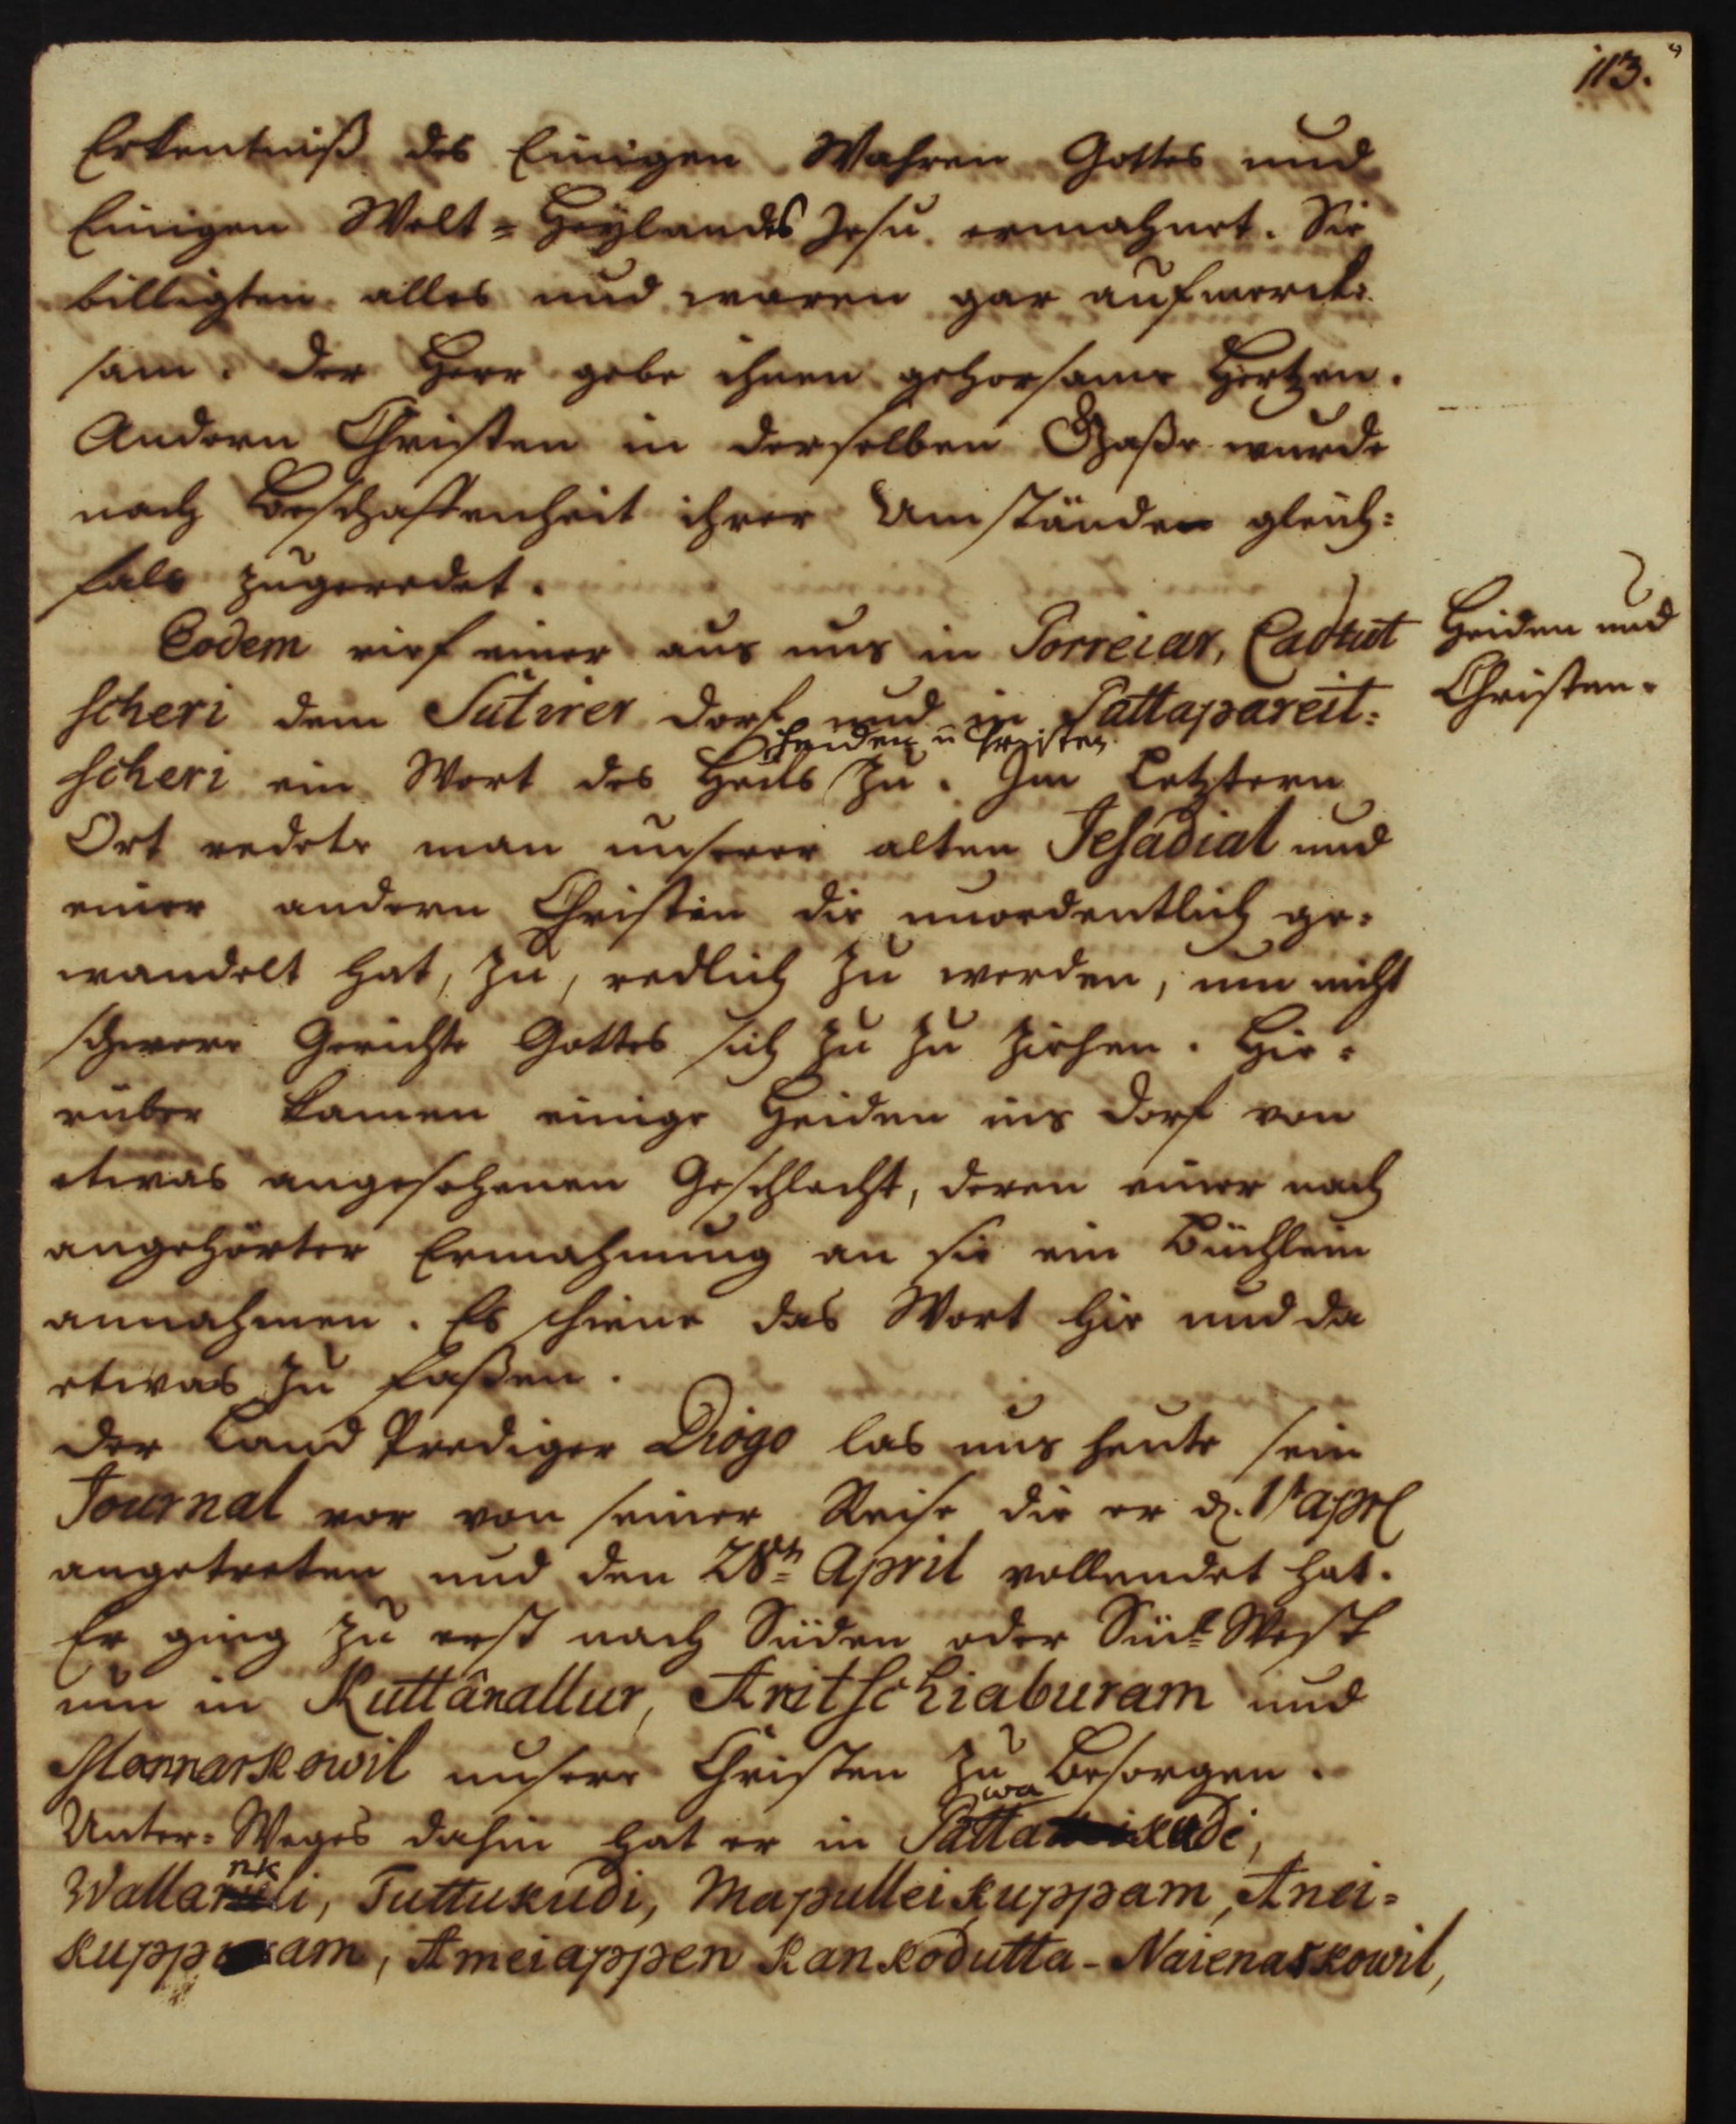 113.
Erkentniß des Einigen Wahren Gottes und
Einigen Welt=Heylandes Jesu ermahnet. Sie
billigten alles und waren gar aufmerck-
sam. Der Herr gebe ihnen gehorsame Hertzen.
Andern Christen in derselben Gaße wurde
nach Beschaffenheit ihrer Umständen gleich=
fals zugeredet.
Eodem rief einer aus uns in Porreiar, Cadtut
scheri dem Sutirer Dorf und in Sattapareit=
Heiden u Christen
scheri ein Wort des Heils zu. Im Letztern
Ort redete man unserer alten Jesadial und
einer andern Christin die unordentlich ge=
wandelt hat, zu, redlich zu werden, um nicht
schwere Gerichte Gottes sich zu zu ziehen. Hir=
über kamen einige Heiden ins Dorf von
etwas angesehenen Geschlecht, deren einer nach
angehörter Ermahnung an sie ein Büchlein
annahmen. Es schiene das Wort hie und da
etwas zu faßen.
Der Land Prediger Diogo las uns heute sein
Journal vor von seiner Reise die er d. 1t aprl
angetreten und den 28th April vollendet hat.
Er ging zu erst nach Süden oder Süd-West
um in Kuttânallur, Aritschiaburam und
Mannarkowil unsere Christen zu besorgen.
Unter=Weges dahin hat er in Pattawakudi,
Wallanki, Tuttukudi, Mapulleikuppam, Anei=
kuppam, Ameiappen Kankodutta-Naienarkowil,
Heiden und
Christen.